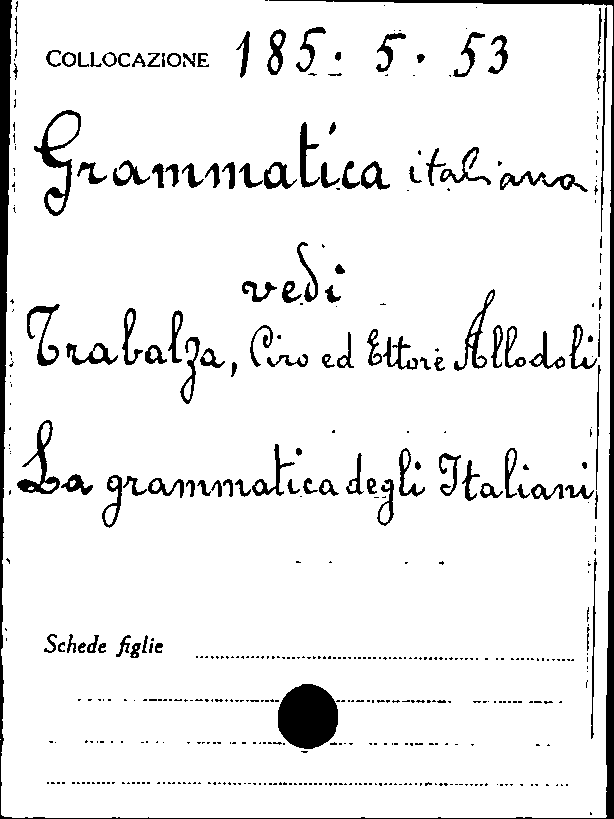 COLLOCAZIONE 185. 5. 53
Grammatica italiana
vedi
Trabalza, Ciro ed Ettore Allodoli
La grammatica degli Italiani
Schede figlie